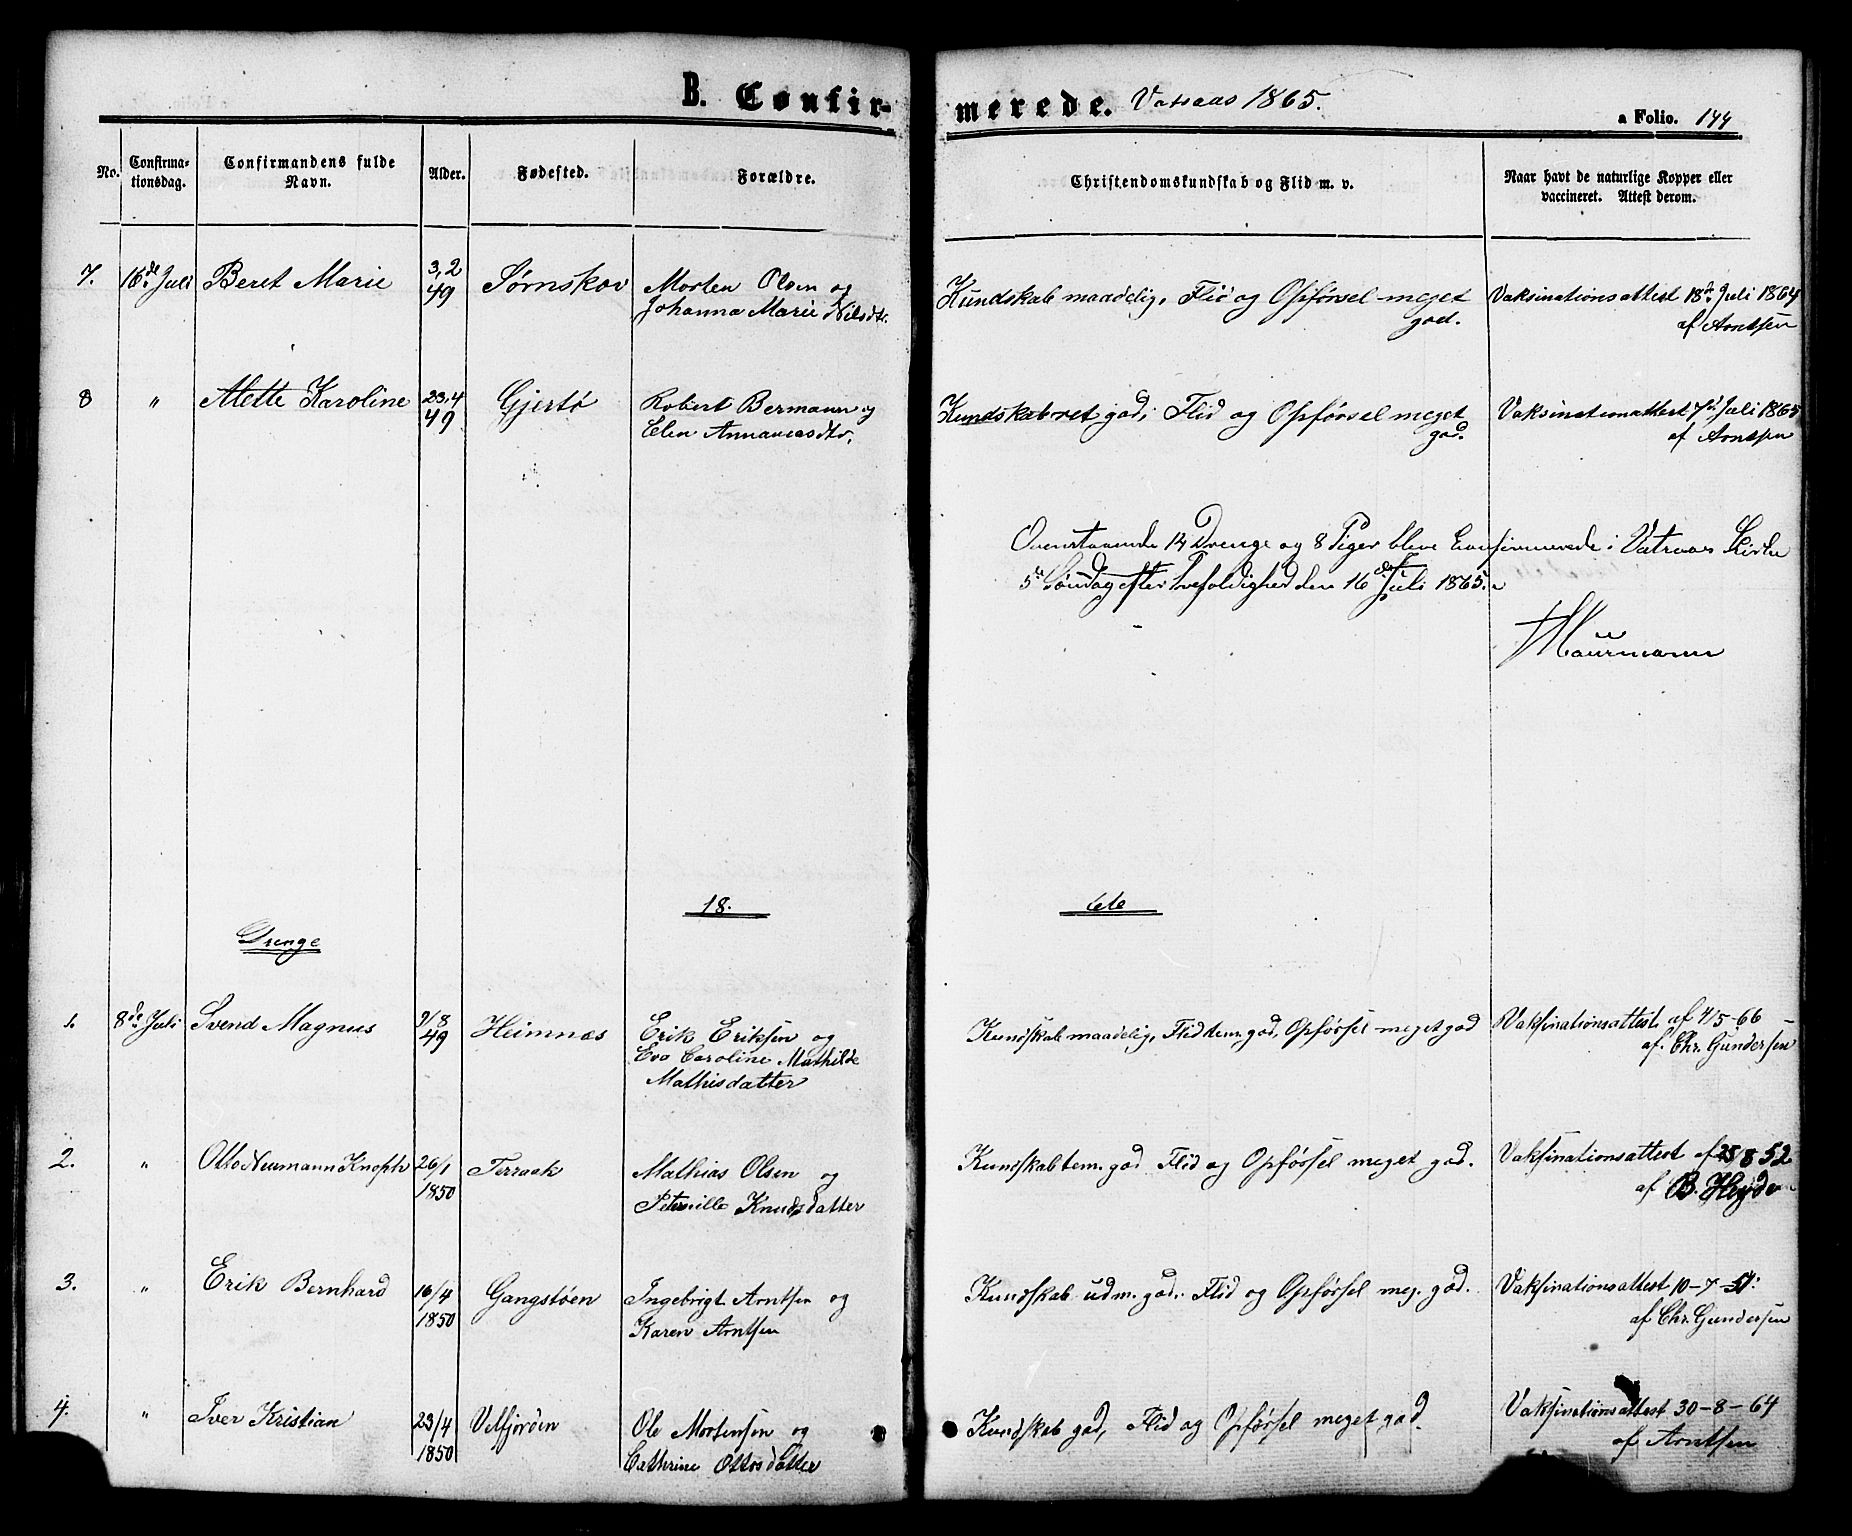 B. Confirmerede. Vatsaas 1865.
a Folio. 144
No. Confirmationsdag. Confirmandens fulde Navn. Alder. Fødested. Forældre. Christendomskundskab og Flid m. v. Naar havt de naturlige Kopper eller vaccineret. Attest derom.
7. 16de Juli Beret Marie 3,2 49 Sørnskov Morten Olsen og Kundskab maadelig, Flid og Opførsel meget Vaksinationsattest 18de Juli 1864
Johanna Marie Nilsdtr. god. af Arntsen
8 " Mette Karoline 23,4 49 Gjertø Robert Bermann og Kundskab ret god; Flid og Opførsel meget Vaksinationattest 7de Juli 1865
Elen Annaniasdtr. god. af Arntsen
Ovenstaaende 14 Drenge og 8 Piger bleve konfirmerede i Vatsaas Kirke
5te Søndag efter Trefoldighed den 16de Juli 1865.
18 66
Drenge
1. 8de Juli Svend Magnus 9/8 49 Heimnæs Erik Eriksen og Kundskab maadelig, Flid tem. god, Opførsel meget god Vaksinationsattest af 4/5-66
Eva Caroline Mathilde af Chr. Gundersen
Mathisdatter
2. " Otto Neumann Knoph 26/1 1850 Terraak Mathias Olsen og Kundskab tem. god Flid og Opførsel meget god. Vaksinationsattest af 25 8 52
Peternille Knudsdatter af B. Heyde
3. " Erik Bernhard 16/4 1850 Gangstøen Ingebrigt Arntsen og Kundskab udm. god. Flid og Opførsel meg. god. Vaksinationsattest 10-7-51
Karen Arntsen af Chr. Gundersen
4. " Iver Kristian 23/4 1850 Velfjorden Ole Mortensen og Kundskab god, Flid og Opførsel meget god. Vaksinationsattest 30-8-64
Cathrine Ottosdatter af Arntsen